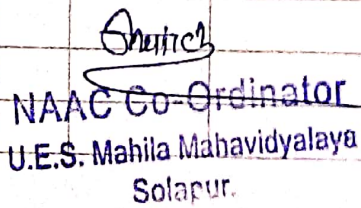 NAAC Co-Ordinator
U.E.S. Mahila Mahavidyalaya
Solapur.